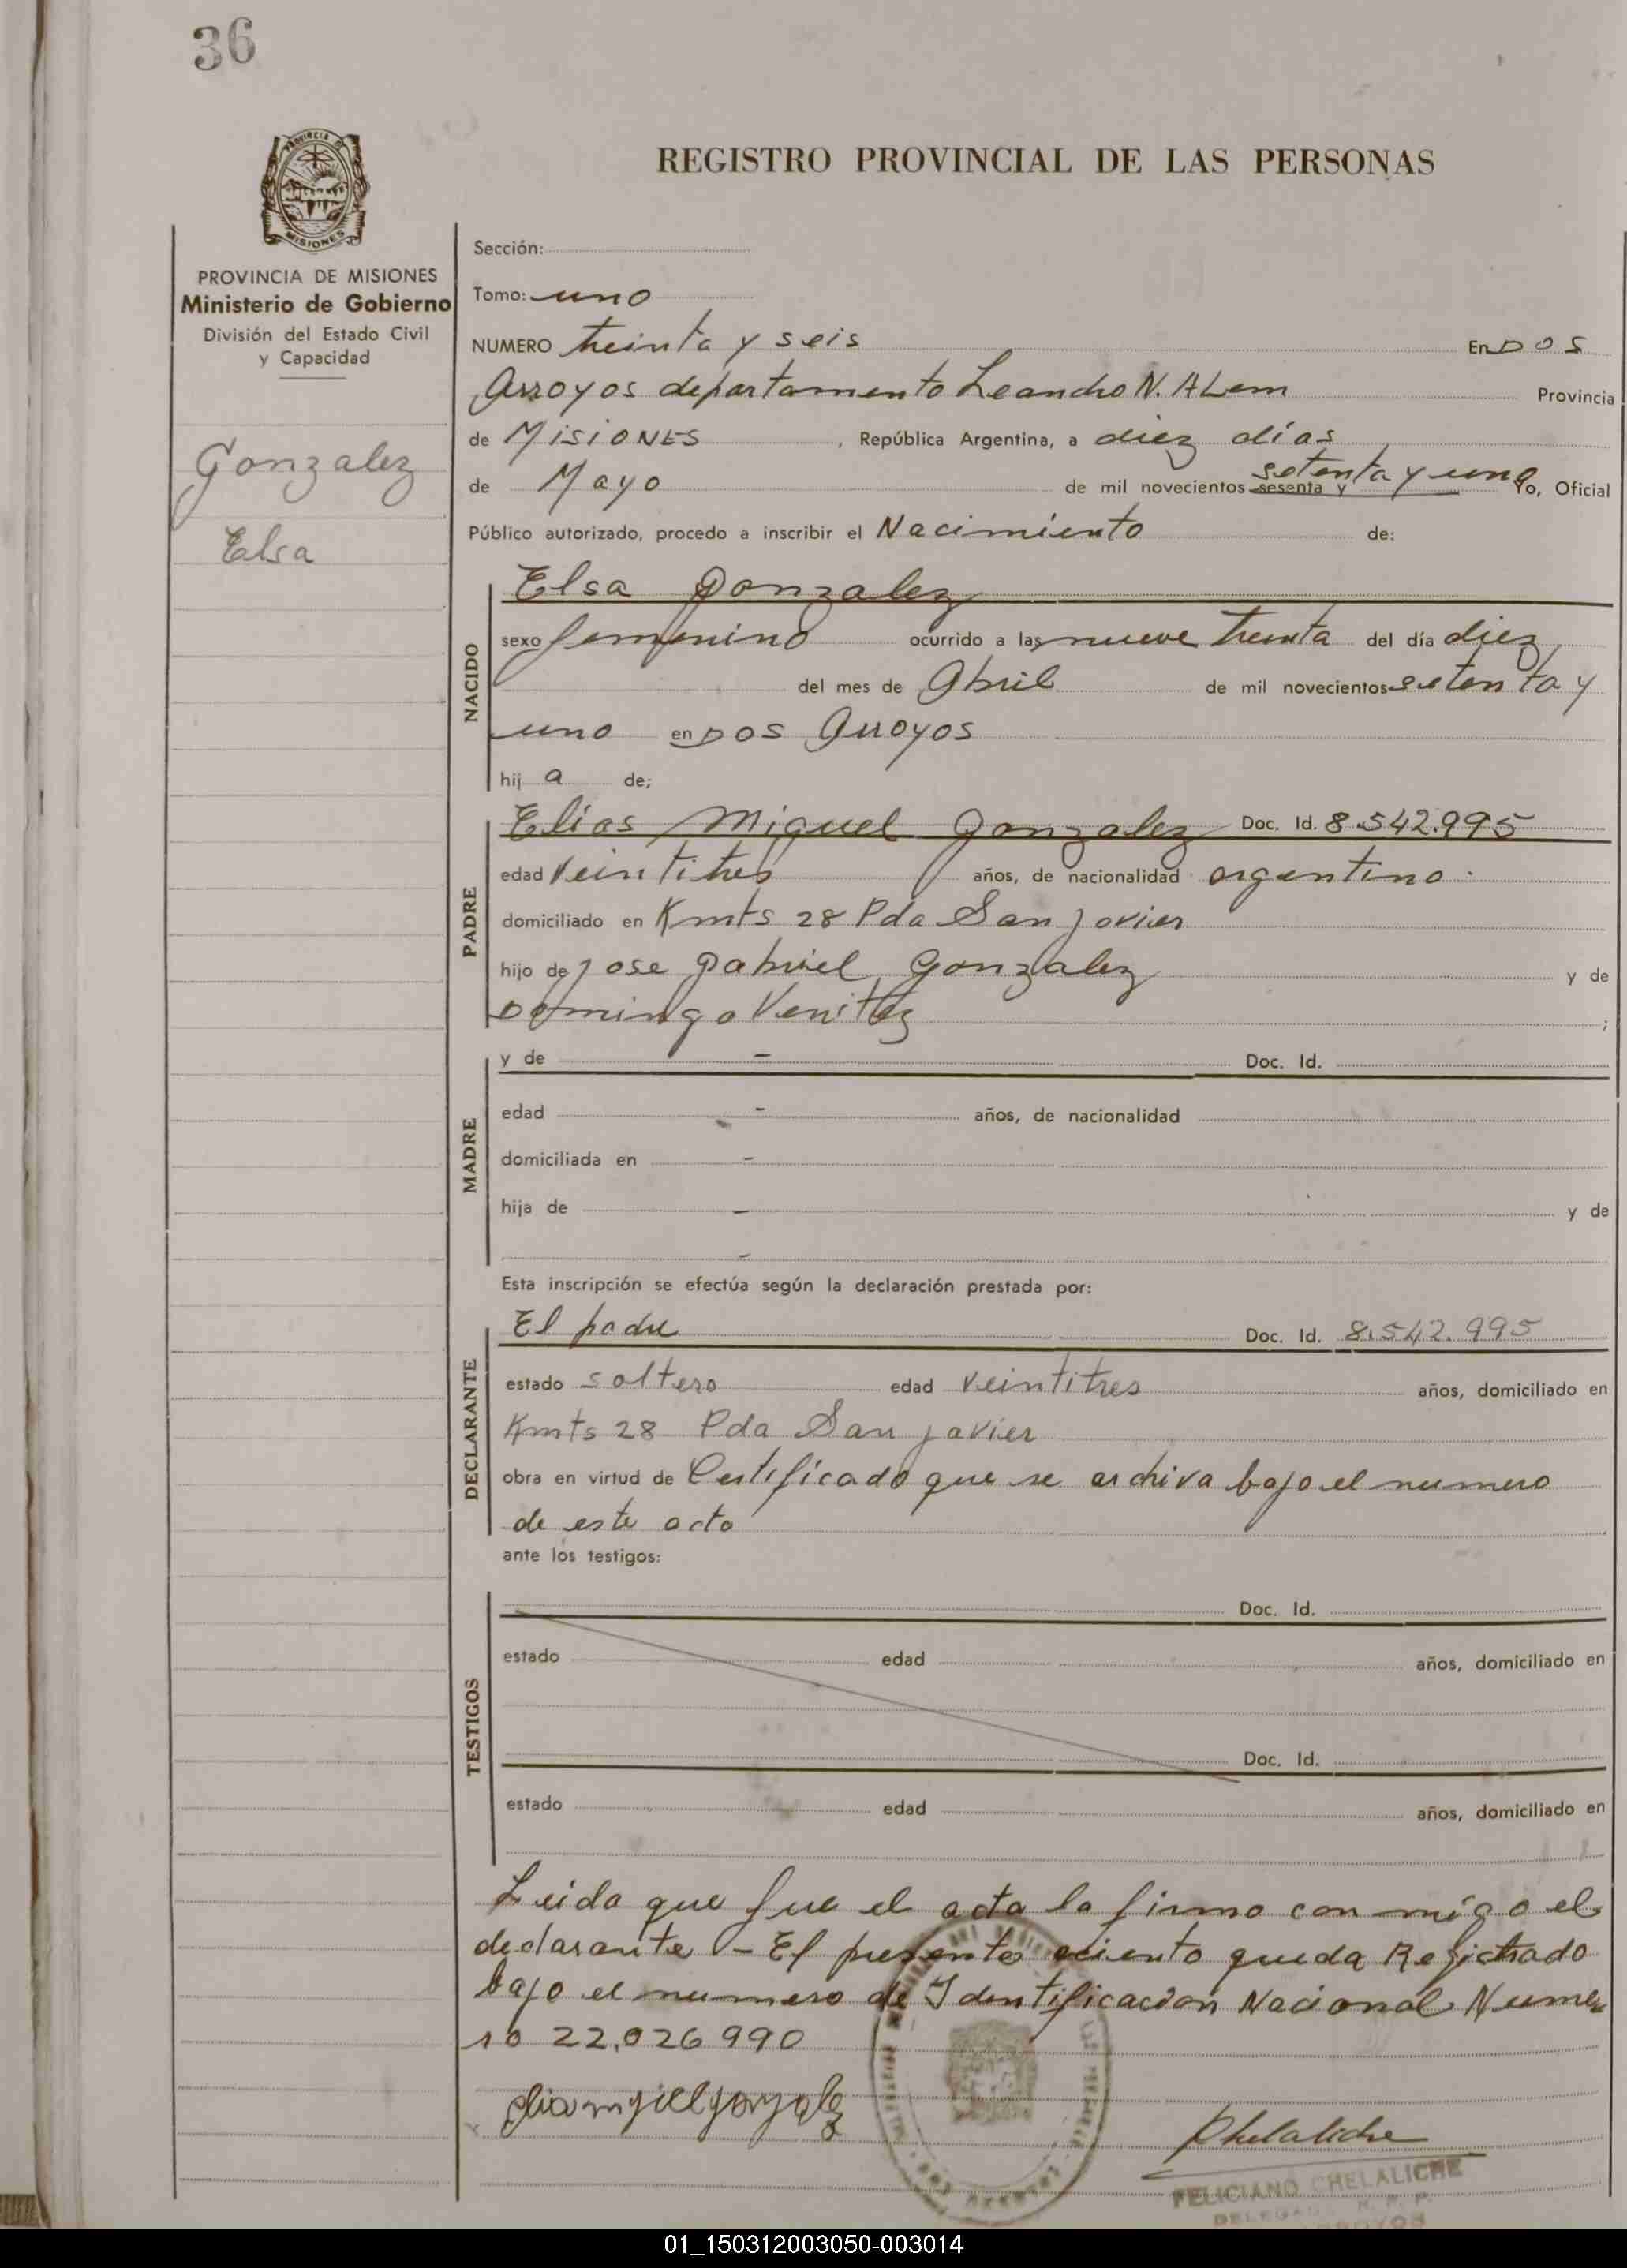 36
REGISTRO PROVINCIAL DE LAS PERSONAS
PROVINCIA DE
MISIONES
PROVINCIA DE MISIONES
Ministerio de Gobierno
División del Estado Civil
y Capacidad
Gonzalez
Elsa
Sección:
Tomo: uno
NUMERO treinta y seis En DOS
Arroyos departamento Leandro N. ALem Provincia
de MISIONES , República Argentina, a diez días
de Mayo de mil novecientos sesenta y setenta y uno Yo, Oficial
Público autorizado, procedo a inscribir el Nacimiento de:
NACIDO
Elsa Gonzalez
sexo femenino ocurrido a las nueve treinta del día diez
del mes de Abril de mil novecientos setenta y
uno en DOS Arroyos
hij a de;
PADRE
Elias Miguel Gonzalez Doc. Id. 8.542.995
edad Veintitres años, de nacionalidad argentino.
domiciliado en Kmts 28 Pda San Javier
hijo de Jose Gabriel Gonzalez y de
Dominga Venitez ;
MADRE
y de - Doc. Id.
edad - años, de nacionalidad
domiciliada en -
hija de - y de
-
Esta inscripción se efectúa según la declaración prestada por:
DECLARANTE
El padre Doc. Id. 8.542.995
estado soltero edad Veintitres años, domiciliado en
Kmts 28 Pda San Javier
obra en virtud de Certificado que se archiva bajo el numero
de este acto
ante los testigos:
TESTIGOS
Doc. Id.
estado edad años, domiciliado en
Doc. Id.
estado edad años, domiciliado en
Leida que fue el acta la firma con migo el
declarante - El presente aciento queda Registrado
bajo el numero de Identificacion Nacional Nume
ro 22,026 990
Chelaliche
FELICIANO CHELALICHE
01_150312003050-003014